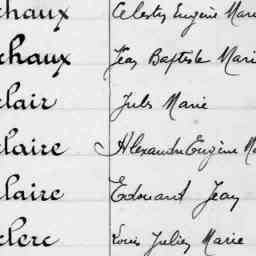 chaux Celestin Eugène Marie
chaux Jean Baptiste Marie
clair Jules Marie
claire Alexandre Eugène
claire Edouard Jean
clerc Louis Julien Marie